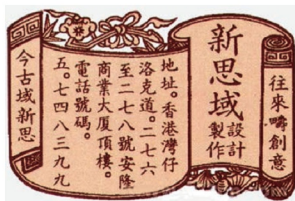 往來疇創意
新思域
設計
製作
地址。香港灣仔
洛克道。二七六
至二七八號安隆
商業大廈頂樓。
電話號碼。
五。七四八三九九
今古域新思